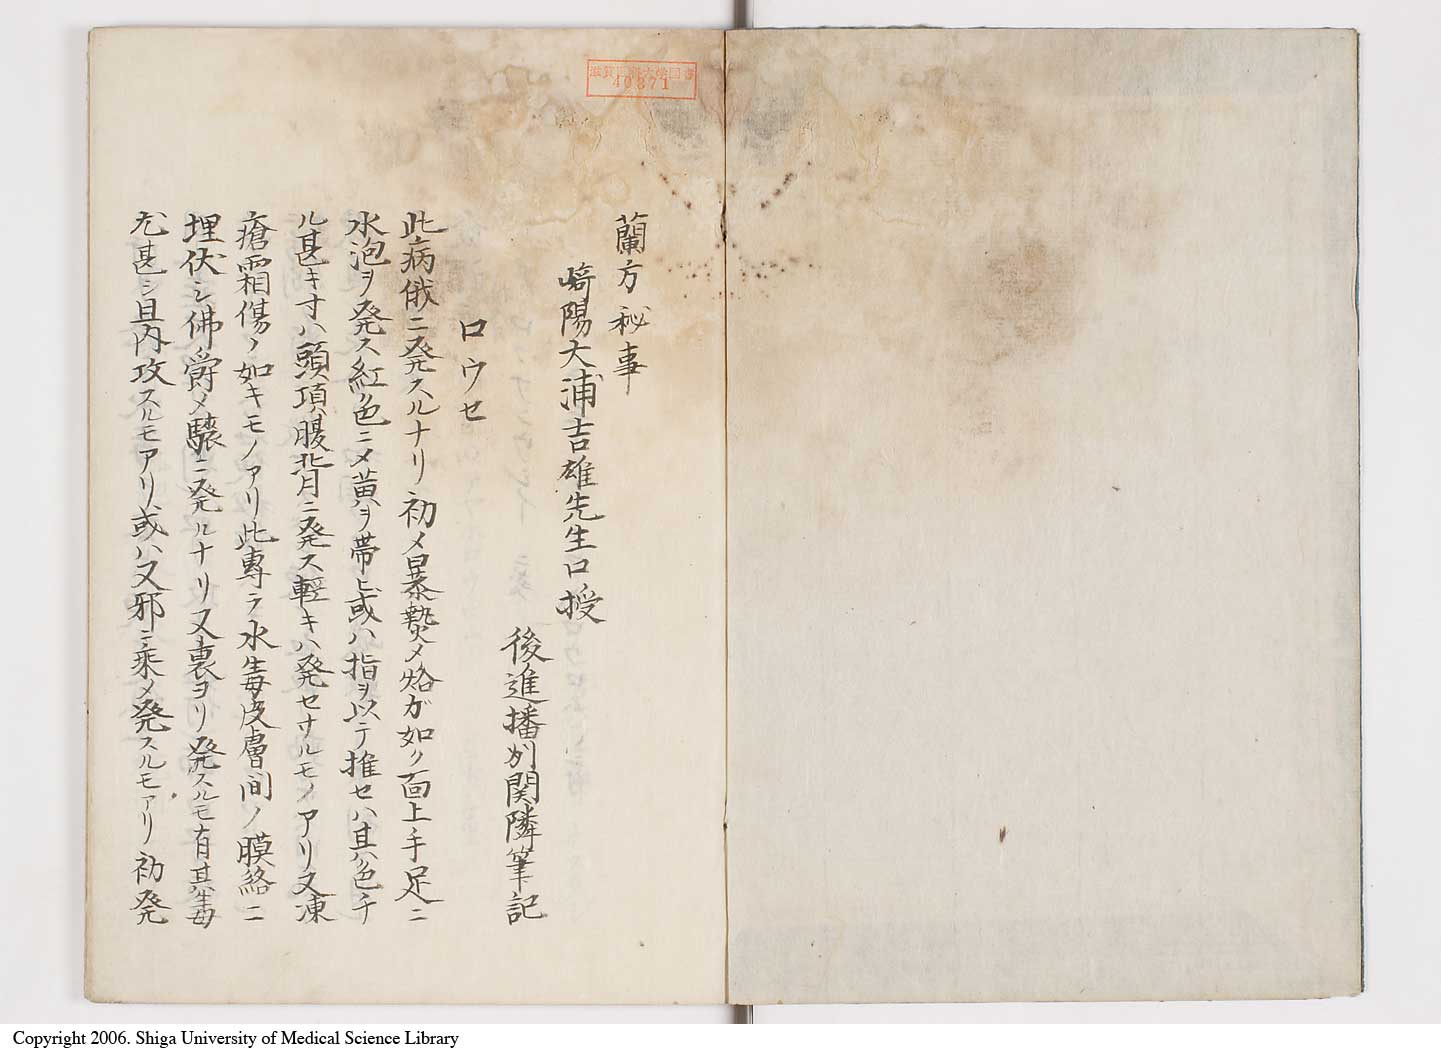 蘭方秘事
﨑陽大浦吉雄先生口授
後進播州関隣筆記
ロウセ
此病俄ニ発スルナリ初メ暴㷍〆烙ガ如ク面上手足ニ
水泡ヲ発ス紅色ニ〆黄ヲ帯ヒ或ハ指ヲ以テ推セハ其色チ
ル甚キ寸ハ頭項腹背ニ発ス軽キハ発セサルモノアリ又凍
瘡霜傷ノ如キモノアリ此専ラ水毒皮膚間ノ膜絡ニ
埋伏シ佛欝〆驟ニ発ルナリ又裏ヨリ発スルモ有其毒
尤甚シ且内攻スルモアリ或ハ又邪ニ乗〆発スルモアリ初発
滋賀医科大学図書
40371
Copyright 2006. Shiga University of Medical Science Library